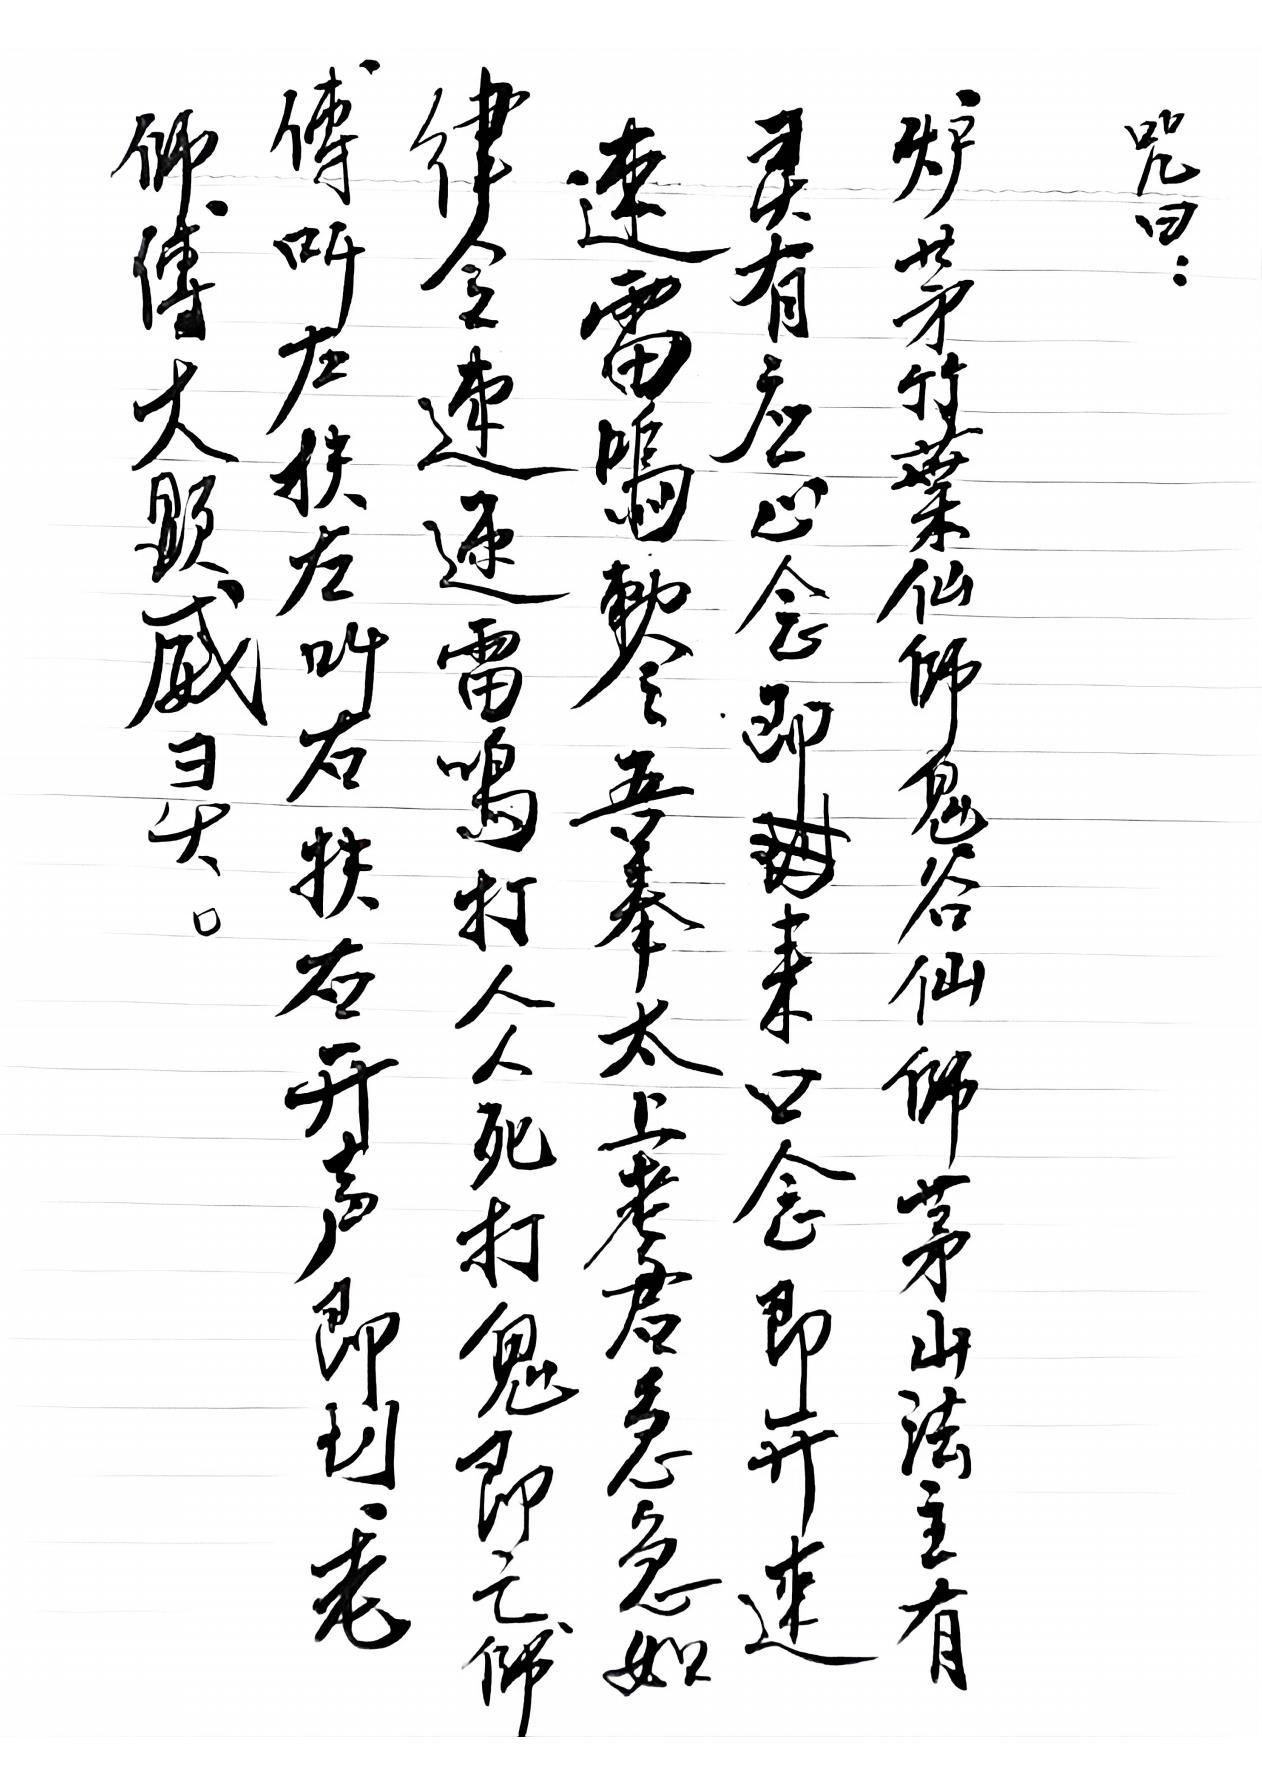 咒曰：
炉茅竹葉仙师鬼谷仙师茅山法主有
灵有应心念即来口念即开速
速雷鳴敕令吾奉太上老君急急如
律令速速雷鳴打人人死打鬼即亡师
傅叫左扶左叫右扶右开声即到老
师傅大顕威灵。